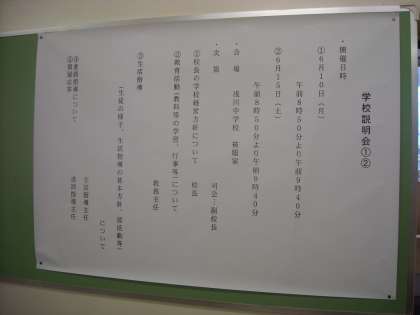 学校説明会①②
・開催日時
①6月10日（月）
午前8時50分より午前9時40分
②6月15日（土）
午前8時50分より午前9時40分
・会場　浅川中学校　被服室
・次第　司会：副校長
①校長の学校経営方針について　校長
②教育活動（教科等の学習、行事等）について
教務主任
③生活指導
（生徒の様子、生活指導の基本方針、部活動等）
について
生活指導主任
④進路指導について
進路指導主任
⑤質疑応答